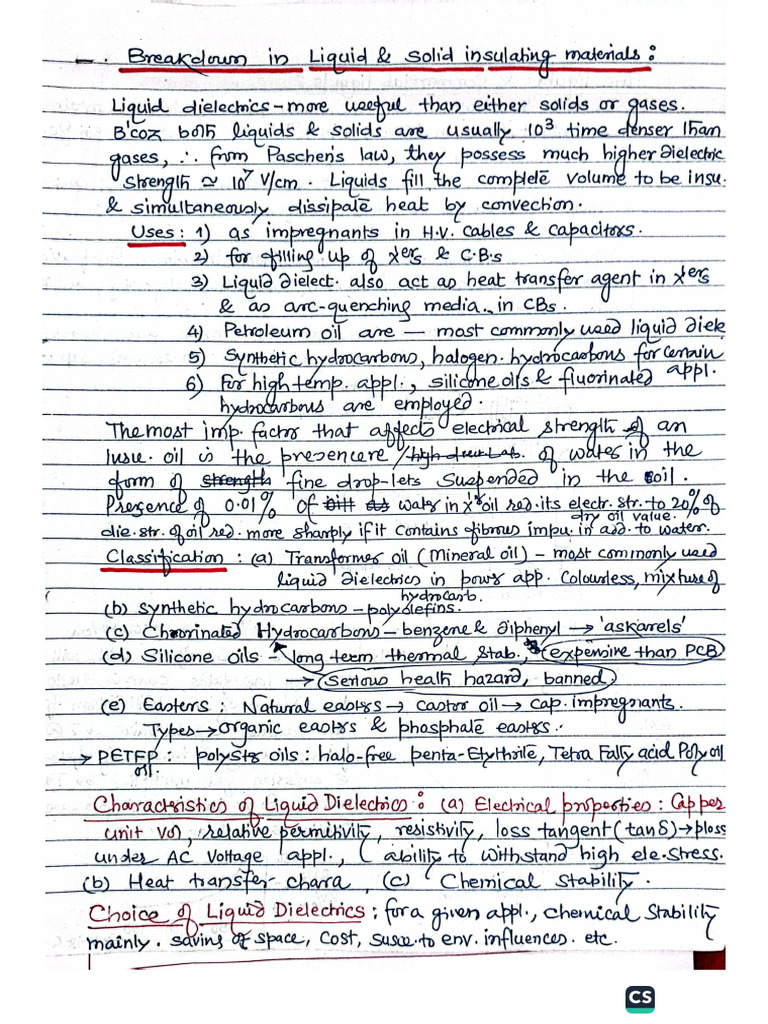 Breakdown in Liquid & solid insulating materials :
Liquid dielectrics - more useful than either solids or gases.
B'coz both liquids & solids are usually 10³ time denser than
gases, ∴ from Paschen's law, they possess much higher dielectric
strength ≃ 10⁷ V/cm. Liquids fill the complete volume to be insu.
& simultaneously dissipate heat by convection.
Uses : 1) as impregnants in H.V. cables & capacitors.
2) for filling up of xers & C.B.s
3) Liquid dielect. also act as heat transfer agent in xers
& as arc-quenching media in CBs.
4) Petroleum oil are — most commonly used liquid diele
5) Synthetic hydrocarbons, halogen. hydrocarbons for certain
appl.
6) For high temp. appl., silicone oils & fluorinated
hydrocarbons are employed.
The most imp. factor that affects electrical strength of an
insu. oil is the of water in the
form of strength fine drop-lets suspended in the oil.
Presence of 0.01% of water in x'r oil red. its electr. str. to 20% of
dry oil value.
die. str. of oil red. more sharply if it contains fibrous impu. in ad. to water.
Classification : (a) Transformer oil (Mineral oil) - most commonly used
liquid dielectrics in powr app. Colourless, mixture of
hydrocarb.
(b) synthetic hydrocarbons - polyolefins.
(c) Chlorinated Hydrocarbons - benzene & diphenyl → 'askarels'
(d) Silicone oils - long term thermal stab., expensive than PCB
→ Serious health hazard, banned.
(e) Easters : Natural eastrs → castor oil → cap. impregnants.
Types → organic eastrs & phosphate eastrs.
→ PETEP : polystr oils : halo-free penta-Etythrite, Tetra Fatty acid Poly oil
oil.
Characteristics of Liquid Dielectrics : (a) Electrical properties : Cap per
unit vol, relative permitivity, resistivity, loss tangent (tanδ) → ploss
under AC Voltage appl., ability to withstand high ele. stress.
(b) Heat transfer chara , (c) Chemical Stability.
Choice of Liquid Dielectrics : for a given appl., chemical stability
mainly. savins of space, cost, susce. to env. influences. etc.
CS